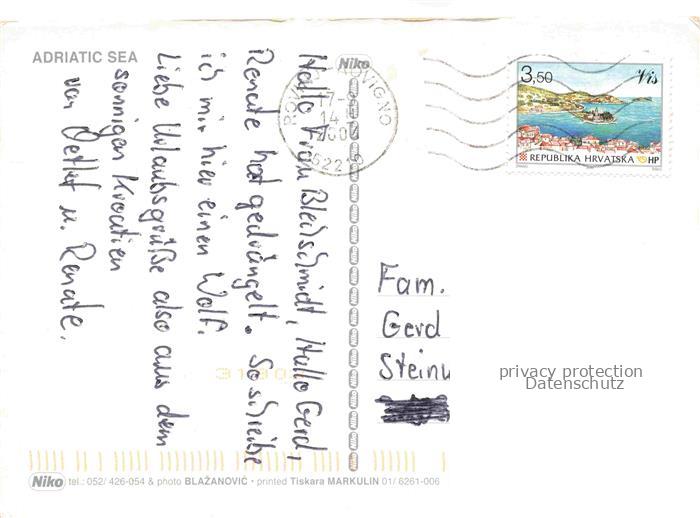 ADRIATIC SEA
Niko
Hallo Frau Bleischmidt, Hallo Gerd,
Renate hat gedrängelt. So schreibe
ich mir hier einen Wolf.
Liebe Urlaubsgrüße also aus dem
sonnigen Kroatien
von Detlef u. Renate.
ROVINJ-ROVIGNO
52210
3,50
Vis
REPUBLIKA HRVATSKA HP
Fam.
Gerd
Steinu
privacy protection
Datenschutz
Niko tel.: 052/ 426-054 & photo BLAŽANOVIĆ • printed Tiskara MARKULIN 01/ 6261-006